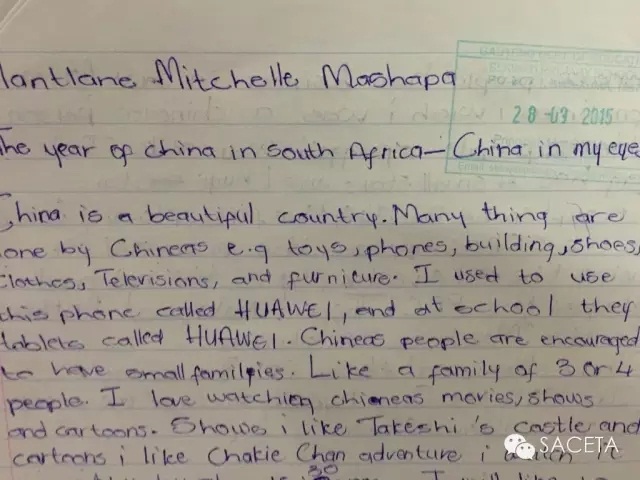 lantlane Mitchelle Mashapa
28-03-2015
The year of china in south Africa— China in my eye
China is a beautiful country. Many thing are
one by Chineas e.g toys, phones, building, shoes,
clothes, Televisions, and furnicure. I used to use
this phone called HUAWEI, and at school they
tablets called HUAWEI. Chineas people are encouraged
to have small familpies. Like a family of 3 or 4
people. I love watching chioneas movies, shows
and cartoons. Shows i like Takeshi's castle and
cartoons i like Chakie Chan adventure i
30
I will like to
SACETA